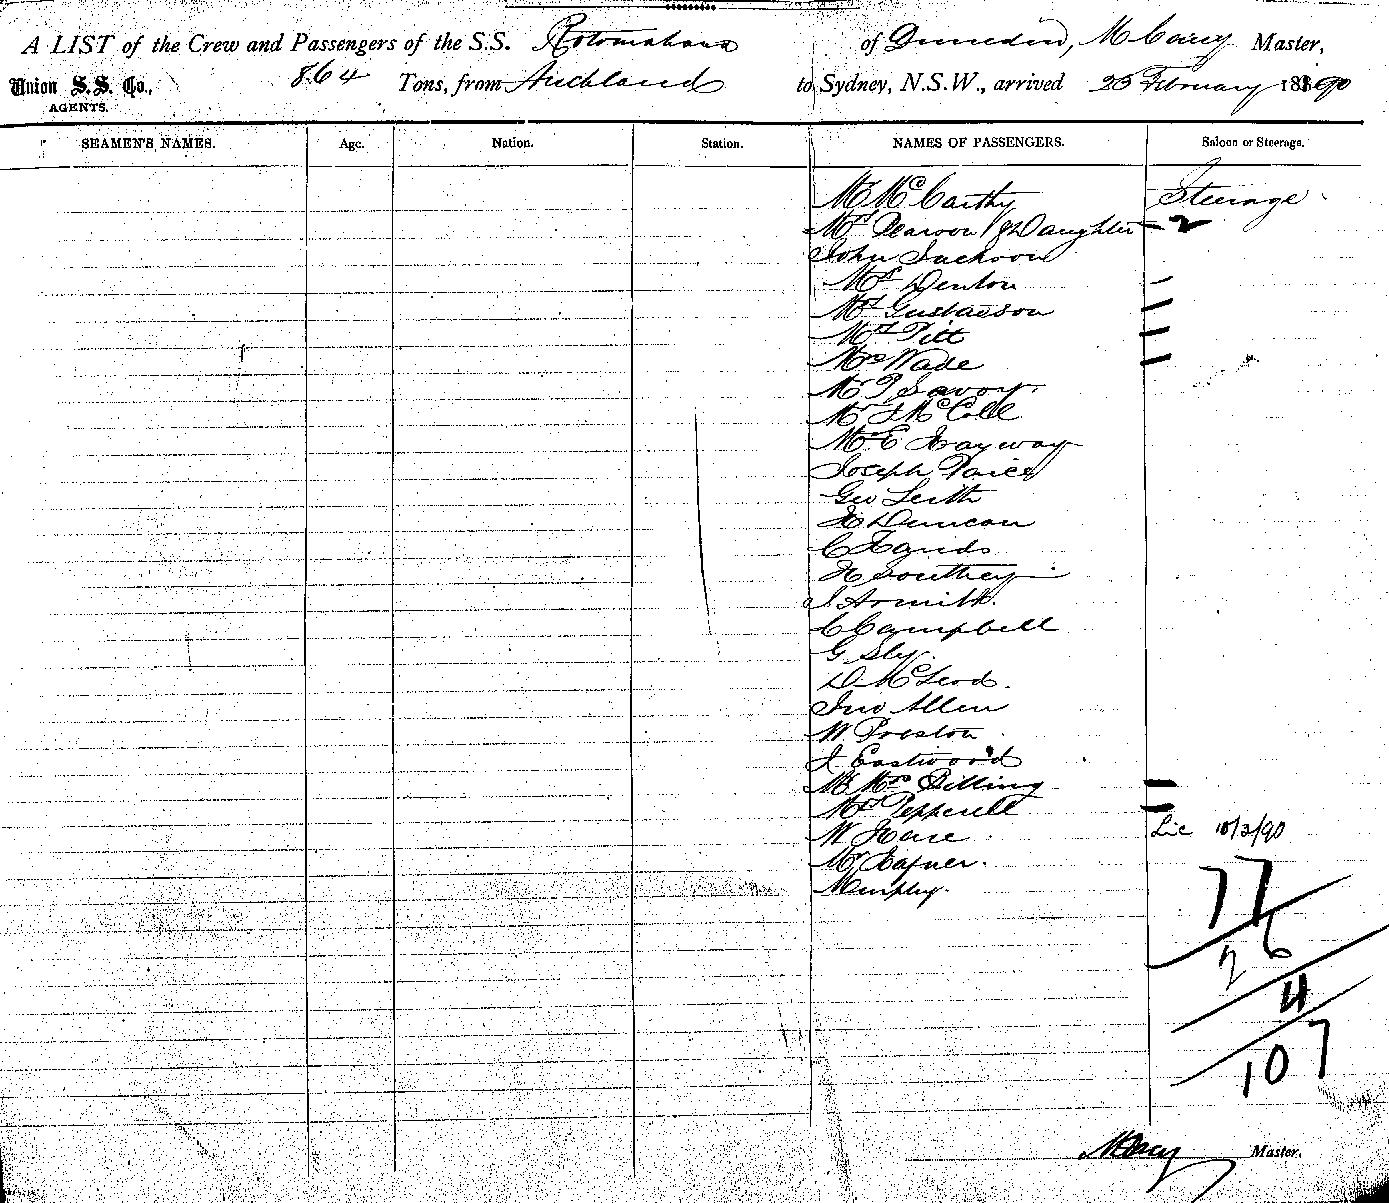 A LIST of the Crew and Passengers of the S.S. Rotomahana of Dunedin, M Carey Master,
Union S.S. Co., AGENTS. 864 Tons, from Auckland to Sydney, N.S.W., arrived 25 February 1890
SEAMEN'S NAMES. Age. Nation. Station. NAMES OF PASSENGERS. Saloon or Steerage.
Mr McCarthy Steerage
Mrs Pearson & Daughter 2
John Jackson
Mrs Denton
Mrs Gustavson
Mrs Pitt
Mrs Wade
Mr P Savory
Mr J McColl
Mr E Hayway
Joseph Price
Geo Leith
H Duncan
C
H Southey
J Asmith.
C Campbell
G Sly.
D McLeod.
Jno Allen
W Preston
J Eastwood
Mr Mrs Billing
Mrs Pepperell
W Hare Lic 10/2/90
Mr Hafner.
Murphy.
77
26
4
107
M Carey Master.